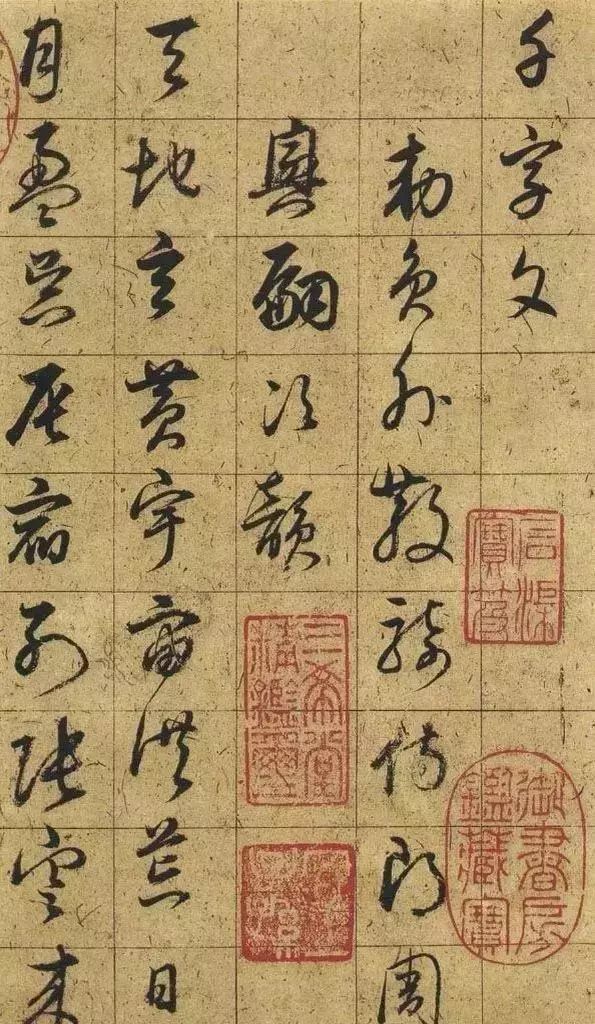 千字文
勅員外散騎侍郎周
興嗣次韻
天地玄黃宇宙洪荒日
月盈昃辰宿列張寒來
石渠寶笈
御書房鑑藏寶
三希堂精鑑璽